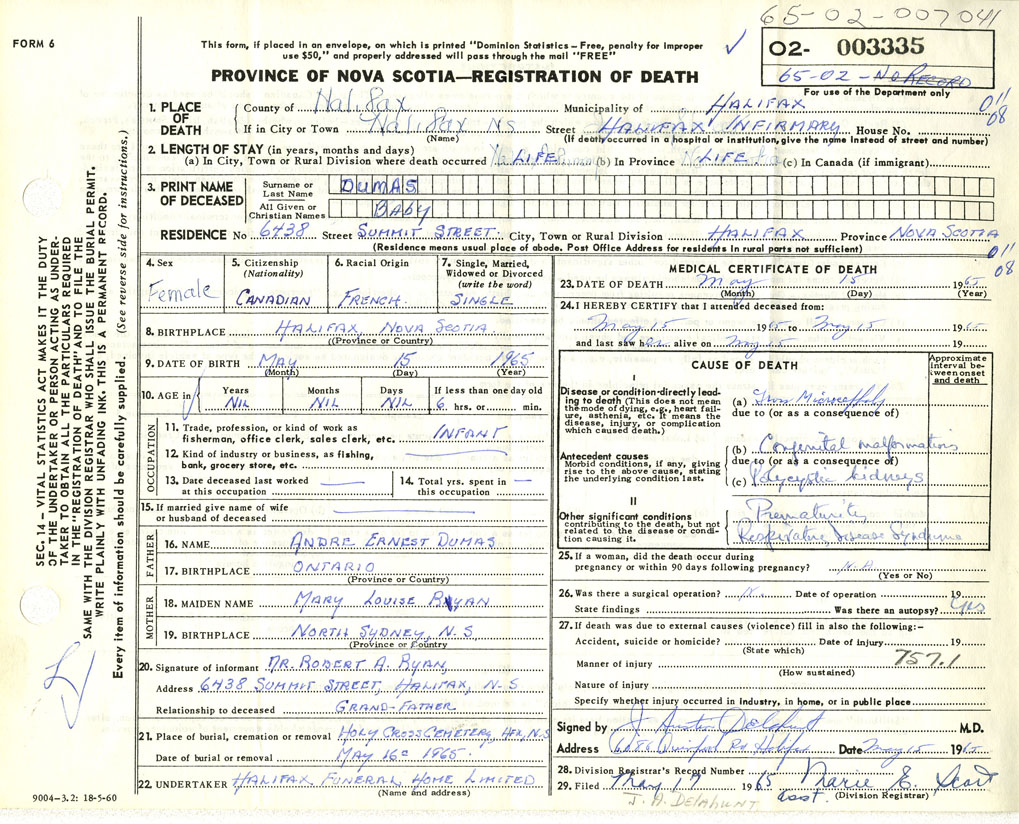 65-02-007041
FORM 6
This form, if placed in an envelope, on which is printed "Dominion Statistics—Free, penalty for improper
use $50," and properly addressed will pass through the mail "FREE"
02- 003335
65-02-No Record
For use of the Department only
PROVINCE OF NOVA SCOTIA—REGISTRATION OF DEATH
011
08
1. PLACE OF DEATH
County of Halifax Municipality of HALIFAX
If in City or Town Halifax NS Street HALIFAX INFIRMARY House No.
(Name) (If death occurred in a hospital or institution, give the name instead of street and number)
2. LENGTH OF STAY (in years, months and days)
(a) In City, Town or Rural Division where death occurred LIFE (b) In Province LIFE (c) In Canada (if immigrant)
3. PRINT NAME OF DECEASED
Surname or Last Name DUMAS
All Given or Christian Names BABY
RESIDENCE No 6438 Street SUMMIT STREET City, Town or Rural Division HALIFAX Province NOVA SCOTIA
(Residence means usual place of abode. Post Office Address for residents in rural parts not sufficient)
011
08
4. Sex
Female
5. Citizenship
(Nationality)
CANADIAN
6. Racial Origin
FRENCH
7. Single, Married,
Widowed or Divorced
(write the word)
SINGLE
8. BIRTHPLACE HALIFAX NOVA SCOTIA
((Province or Country)
9. DATE OF BIRTH MAY 15 1965
(Month) (Day) (Year)
10. AGE in
Years Months Days If less than one day old
NIL NIL NIL 6 hrs. or min.
OCCUPATION
11. Trade, profession, or kind of work as
fisherman, office clerk, sales clerk, etc. INFANT
12. Kind of industry or business, as fishing,
bank, grocery store, etc.
13. Date deceased last worked
at this occupation
14. Total yrs. spent in
this occupation
15. If married give name of wife
or husband of deceased
FATHER
16. NAME ANDRE ERNEST DUMAS
17. BIRTHPLACE ONTARIO
(Province or Country)
MOTHER
18. MAIDEN NAME MARY LOUISE RYAN
19. BIRTHPLACE NORTH SYDNEY, N.S.
(Province or Country)
20. Signature of informant MR. ROBERT A. RYAN,
Address 6438 SUMMIT STREET, HALIFAX, N-S
Relationship to deceased GRAND-FATHER
21. Place of burial, cremation or removal HOLY CROSS CEMETERY, HFX, N.S
Date of burial or removal MAY 16 1965
22. UNDERTAKER HALIFAX FUNERAL HOME LIMITED
(Name and address)
9004-3.2: 18-5-60
MEDICAL CERTIFICATE OF DEATH
23. DATE OF DEATH May 15 1965
(Month) (Day) (Year)
24. I HEREBY CERTIFY that I attended deceased from:
May 15 1965 to May 15 1965
and last saw her alive on May 15 19
CAUSE OF DEATH
Approximate
Interval be-
tween onset
and death
I
Disease or condition directly lead-
ing to death (This does not mean
the mode of dying, e.g., heart fail-
ure, asthenia, etc. It means the
disease, injury, or complication
which caused death.)
(a) Microcephaly
due to (or as a consequence of)
Antecedent causes
Morbid conditions, if any, giving
rise to the above cause, stating
the underlying condition last.
(b) Congenital malformations
due to (or as a consequence of)
(c) Polycystic kidneys
II
Other significant conditions
contributing to the death, but not
related to the disease or condi-
tion causing it.
Prematurity
Respiratory Disease Syndrome
25. If a woman, did the death occur during
pregnancy or within 90 days following pregnancy? N.A
(Yes or No)
26. Was there a surgical operation? Date of operation 19
State findings Was there an autopsy? Yes
27. If death was due to external causes (violence) fill in also the following:—
Accident, suicide or homicide? Date of injury 19
(State which)
757.1
Manner of injury
(How sustained)
Nature of injury
Specify whether injury occurred in Industry, in home, or in public place
Signed by J. Austin Delahunt M.D.
Address Rd Halifax Date May 15 1965
28. Division Registrar's Record Number
29. Filed May 17 1965 Marie E. Scott
Asst. (Division Registrar)
J. A. DELAHUNT
SEC. 14—VITAL STATISTICS ACT MAKES IT THE DUTY
OF THE UNDERTAKER OR PERSON ACTING AS UNDER-
TAKER TO OBTAIN ALL THE PARTICULARS REQUIRED
IN THE "REGISTRATION OF DEATH" AND TO FILE THE
SAME WITH THE DIVISION REGISTRAR WHO SHALL ISSUE THE BURIAL PERMIT.
WRITE PLAINLY WITH UNFADING INK. THIS IS A PERMANENT RECORD.
Every item of information should be carefully supplied. (See reverse side for instructions.)